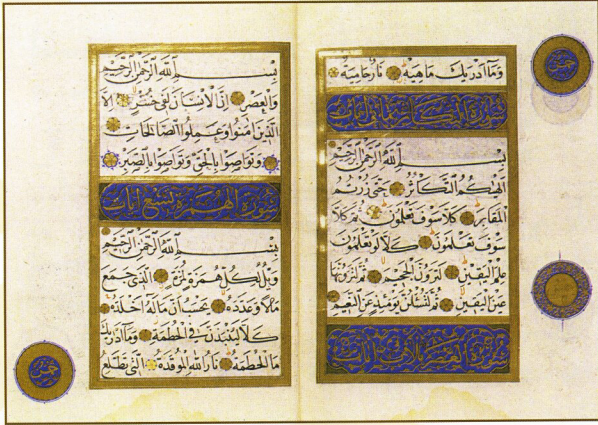 وَمَا أَدْرٰيكَ مَاهِيَهْ نَارٌ حَامِيَةٌ
سورة التكاثر ثماني آيات
بِسْمِ اللّٰهِ الرَّحْمٰنِ الرَّحِيمِ
أَلْهٰيكُمُ التَّكَاثُرُ حَتّٰى زُرْتُمُ
الْمَقَابِرَ كَلَّا سَوْفَ تَعْلَمُونَ ثُمَّ كَلَّا
سَوْفَ تَعْلَمُونَ كَلَّا لَوْ تَعْلَمُونَ
عِلْمَ الْيَقِينِ لَتَرَوُنَّ الْجَحِيمَ ثُمَّ لَتَرَوُنَّهَا
عَيْنَ الْيَقِينِ ثُمَّ لَتُسْئَلُنَّ يَوْمَئِذٍ عَنِ النَّعِيمِ
سورة العصر ثلاث آيات
بِسْمِ اللّٰهِ الرَّحْمٰنِ الرَّحِيمِ
وَالْعَصْرِ إِنَّ الْإِنْسَانَ لَفِي خُسْرٍ إِلَّا
الَّذِينَ اٰمَنُوا وَعَمِلُوا الصَّالِحَاتِ
وَتَوَاصَوْا بِالْحَقِّ وَتَوَاصَوْا بِالصَّبْرِ
سورة الهمزة تسع آيات
بِسْمِ اللّٰهِ الرَّحْمٰنِ الرَّحِيمِ
وَيْلٌ لِكُلِّ هُمَزَةٍ لُمَزَةٍ الَّذِي جَمَعَ
مَالًا وَعَدَّدَهُ يَحْسَبُ أَنَّ مَالَهُ أَخْلَدَهُ
كَلَّا لَيُنْبَذَنَّ فِي الْحُطَمَةِ وَمَا أَدْرٰيكَ
مَا الْحُطَمَةُ نَارُ اللّٰهِ الْمُوقَدَةُ الَّتِي تَطَّلِعُ